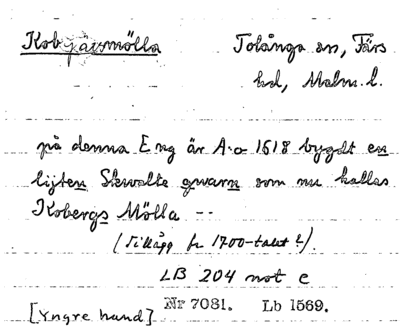 Kobgårsmölla Tolånga sn, Färs
hd, Malm. l.
på denna Eng är A:o 1618 bygdt en
lijten Skwalte qwarn som nu kallas
Kobergs Mölla --
(Tillägg fr 1700-talet?).
LB 204 not e
[Yngre hand] Nr 7081. Lb 1569.